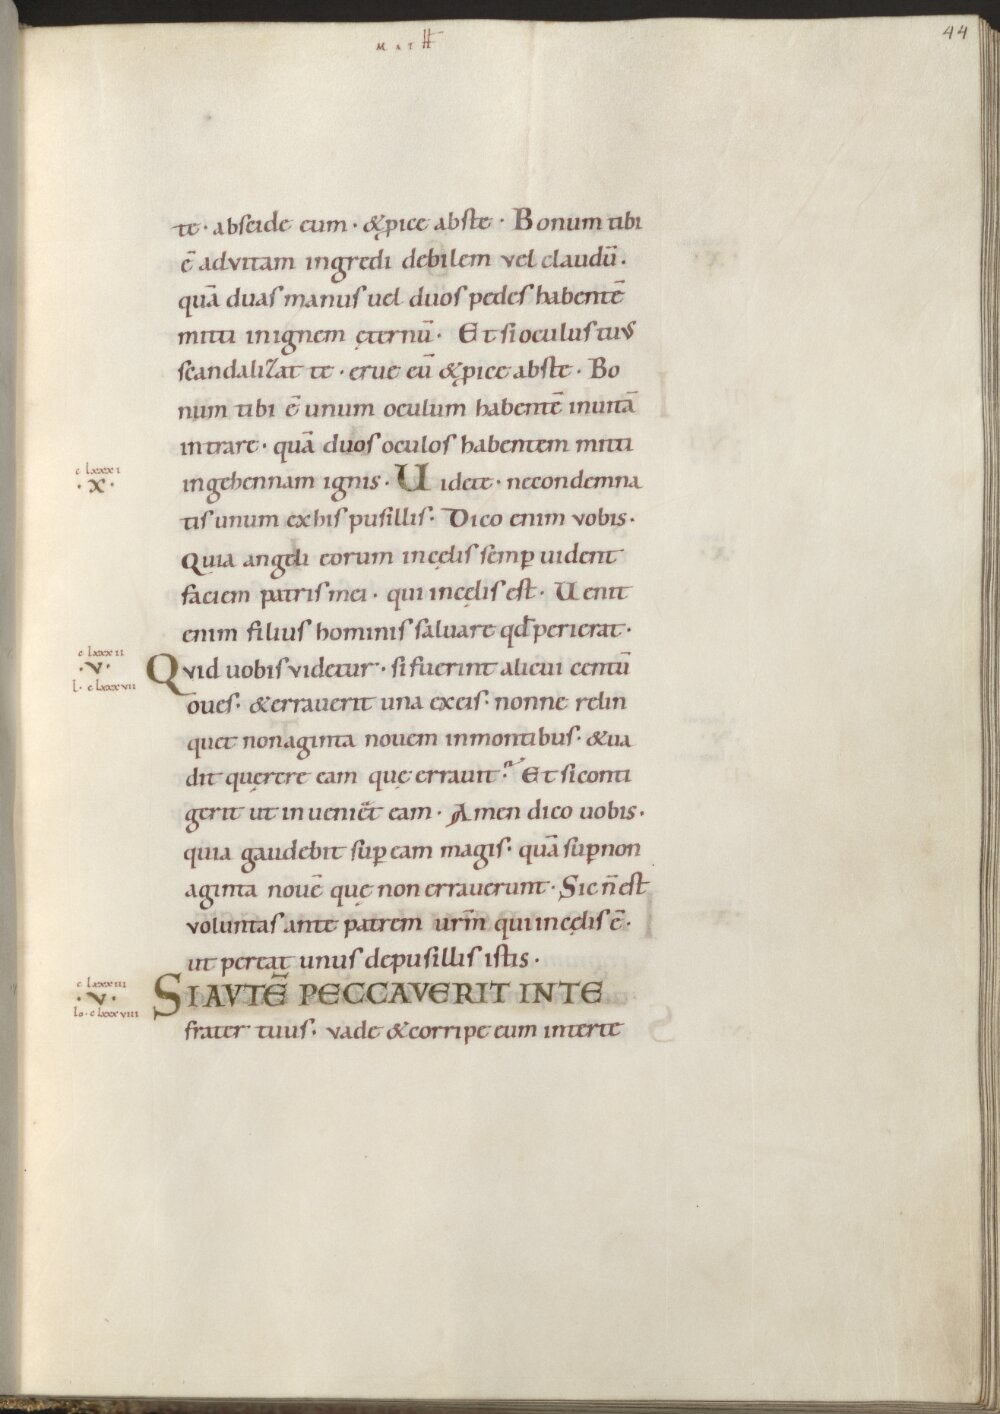 MATH
44
te · abscide eum · &ꝓice abste · Bonum tibi
ē advitam ingredi debilem vel claudū ·
quā duas manus uel duos pedes habentē
mitti inignem ęternū · Et si oculus tuus
scandalizat te · erue eū &ꝓice abste · Bo
num tibi ē unum oculum habentē inuitā
intrare · quā duos oculos habentem mitti
c lxxxi
· x ·
ingehennam ignis · Uidete · necondemna
tis unum exhis pusillis · Dico enim vobis ·
Quia angeli eorum incęlis semꝑ uident
faciem patris mei · qui incęlis est · Uenit
enim filius hominis saluare qđ perierat ·
c lxxxii
· v ·
l · clxxxvii
Qvid uobis videtur · si fuerint alicui centū
oues · &errauerit una exeis · nonne relin
quet nonaginta novem inmontibus · &ua
dit querere eam quę errauit · Et si conti
gerit ut inueniēt eam · Amen dico uobis ·
quia gaudebit suꝑ eam magis · quā suꝑ non
aginta nouē quę non errauerunt · Sic n̄ est
voluntas ante patrem urm̄ qui incęlis ē ·
ut pereat unus depusillis istis ·
c lxxxiii
· v ·
lo · clxxxviii
SI AVTĒ PECCAVERIT INTE
frater tuus · vade &corripe eum interte